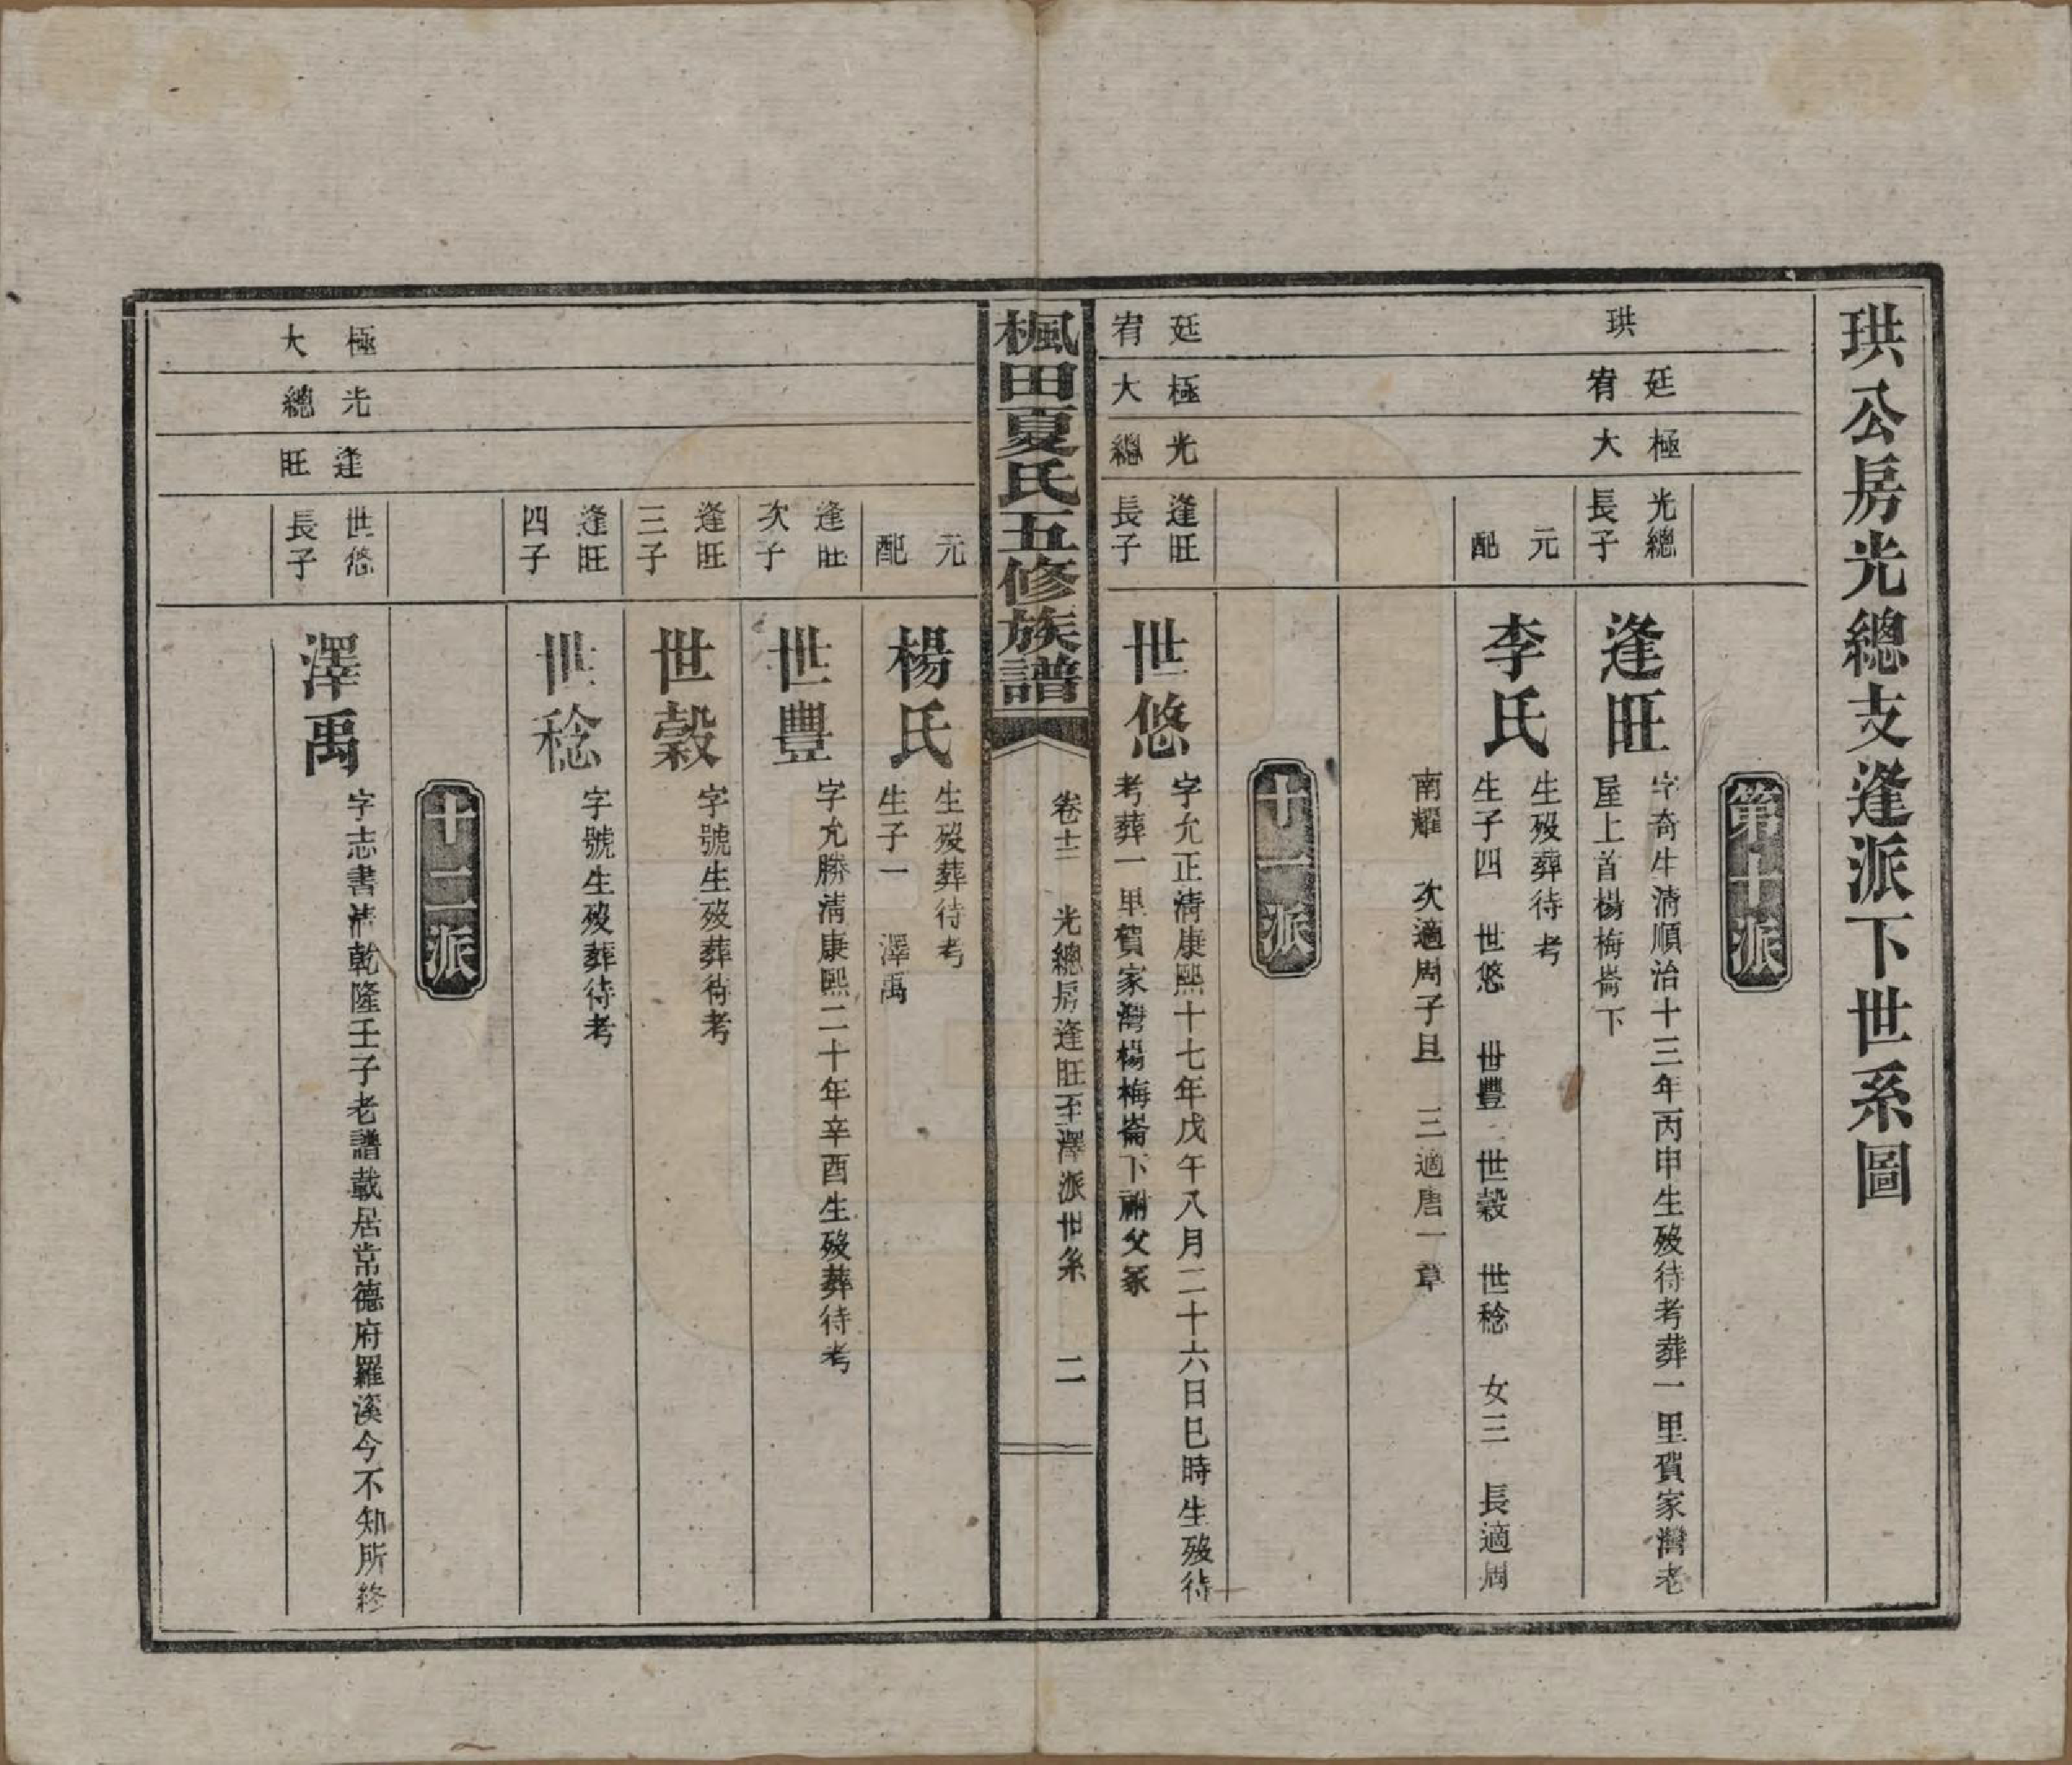 珙公房光總支逢派下世系圖
第十派
珙
廷宥
極大
光總長子
逢旺
字奇生清順治十三年丙申生歿待考葬一里賀家灣老
屋上首楊梅崙下
元配
李氏
生歿葬待考
生子四 世悠 世豐 世穀 世稔 女三 長適周
南耀 次適周子旦 三適唐一章
十一派
廷宥
極大
光總
逢旺長子
世悠
字允正清康熙十七年戊午八月二十六日巳時生歿待
考葬一里賀家灣楊梅崙下祔父冢
楓田夏氏五修族譜
卷十二 光總房逢旺至澤派世系 二
元配
楊氏
生歿葬待考
生子一 澤禹
逢旺次子
世豐
字允勝清康熙二十年辛酉生歿葬待考
逢旺三子
世穀
字號生歿葬待考
逢旺四子
世稔
字號生歿葬待考
十二派
極大
光總
逢旺
世悠長子
澤禹
字志書清乾隆壬子老譜載居常德府羅溪今不知所終